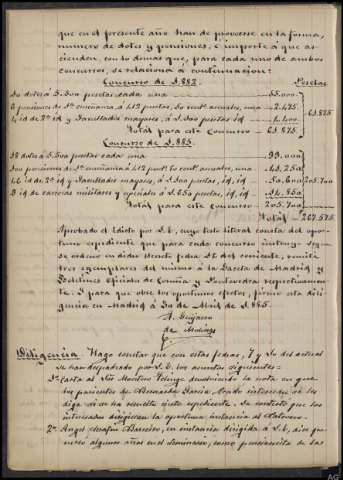 que en el presente año han de proveerse en la forma,
número de dotes y pensiones, é importe á que as-
cienden, con lo demas que, para cada uno de ambos
concursos, se relaciona á continuacion:
Concurso de 1.882. Pesetas
10 dotes á 5.500 pesetas cada una 55.000
6 pensiones de 2ª enseñanza, á 412 pesetas, 50 cents anuales, una 2.475 61.875
4 id de 2ª id y facultades mayores, á 1.100 pesetas id 4.400
Total para este Concurso 61.875
Concurso de 1.885.
18 dotes á 5.500 pesetas cada una 99.000
100 pensiones de 2ª enseñanza á 412 ptas 50 cent. anuales, una 41.250
46 id de 2ª id y facultades mayores, á 1.100 pesetas, id, id 50.600 205.700
9 id de carreras militares y especiales á 1.650 ptas, id, id 14.850
Total para este concurso 205.700
Total 267.575
Aprobado el Edicto por S.E, cuyo texto literal consta del opor-
tuno espediente que para cada concurso
se ordenó en dicho fecha 22 del corriente, remitir
tres ejemplares del mismo á la Gaceta de Madrid y
Boletines Oficiales de Coruña y Pontevedra respectivamen-
te. Y para que obre los oportunos efectos, firmo esta dili-
gencia en Madrid á 30 de Abril de 1.885.
A. Guijarro
de
Diligencia Hago constar que con estas fechas, 7 y 10 del actual
se han despachado por S.E. los asuntos siguientes:
1º Carta al Sr. Montero devolviendo la nota en que
los parientes de García, interesan se les
diga si se ha resuelto este espediente. Se contestó que los
interesados dirijieran la oportuna instancia al Patrono.
2º Angel Barreiro, en instancia dirigida á S.E, dice que
cursó algunos años en el Seminario, como pensionista de la